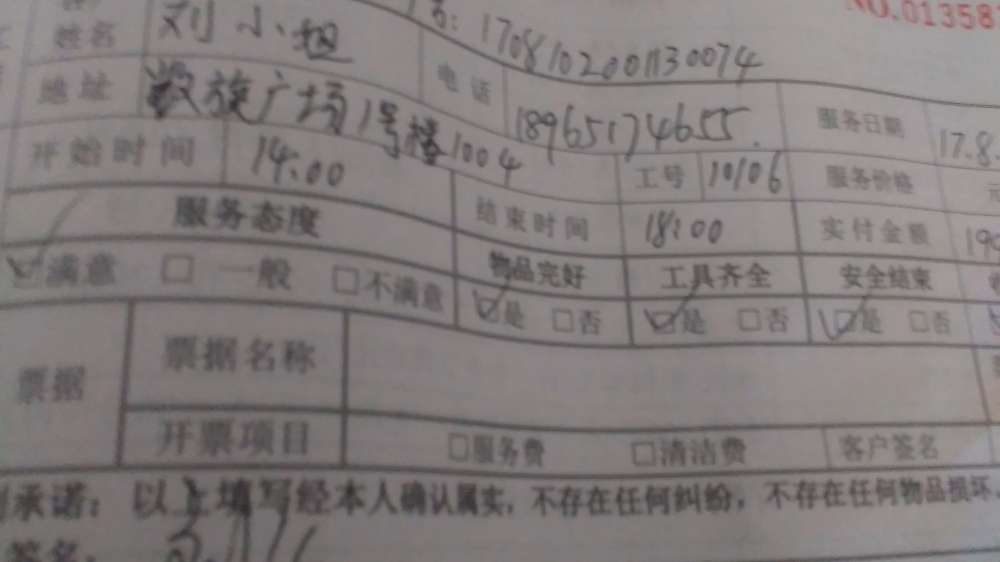 NO.01358
1708102001130074
姓名 刘小姐 电话 18965174655. 服务日期 17.8.
地址 旗广场1号楼1004 工号 10106 服务价格
开始时间 14:00 结束时间 18:00 实付金额 199
服务态度 物品完好 工具齐全 安全结束
满意 □ 一般 □不满意 是 □否 是 □否 是 □否
票据 票据名称
开票项目 □服务费 □清洁费 客户签名
承诺：以上填写经本人确认属实，不存在任何纠纷，不存在任何物品损坏，
签名：